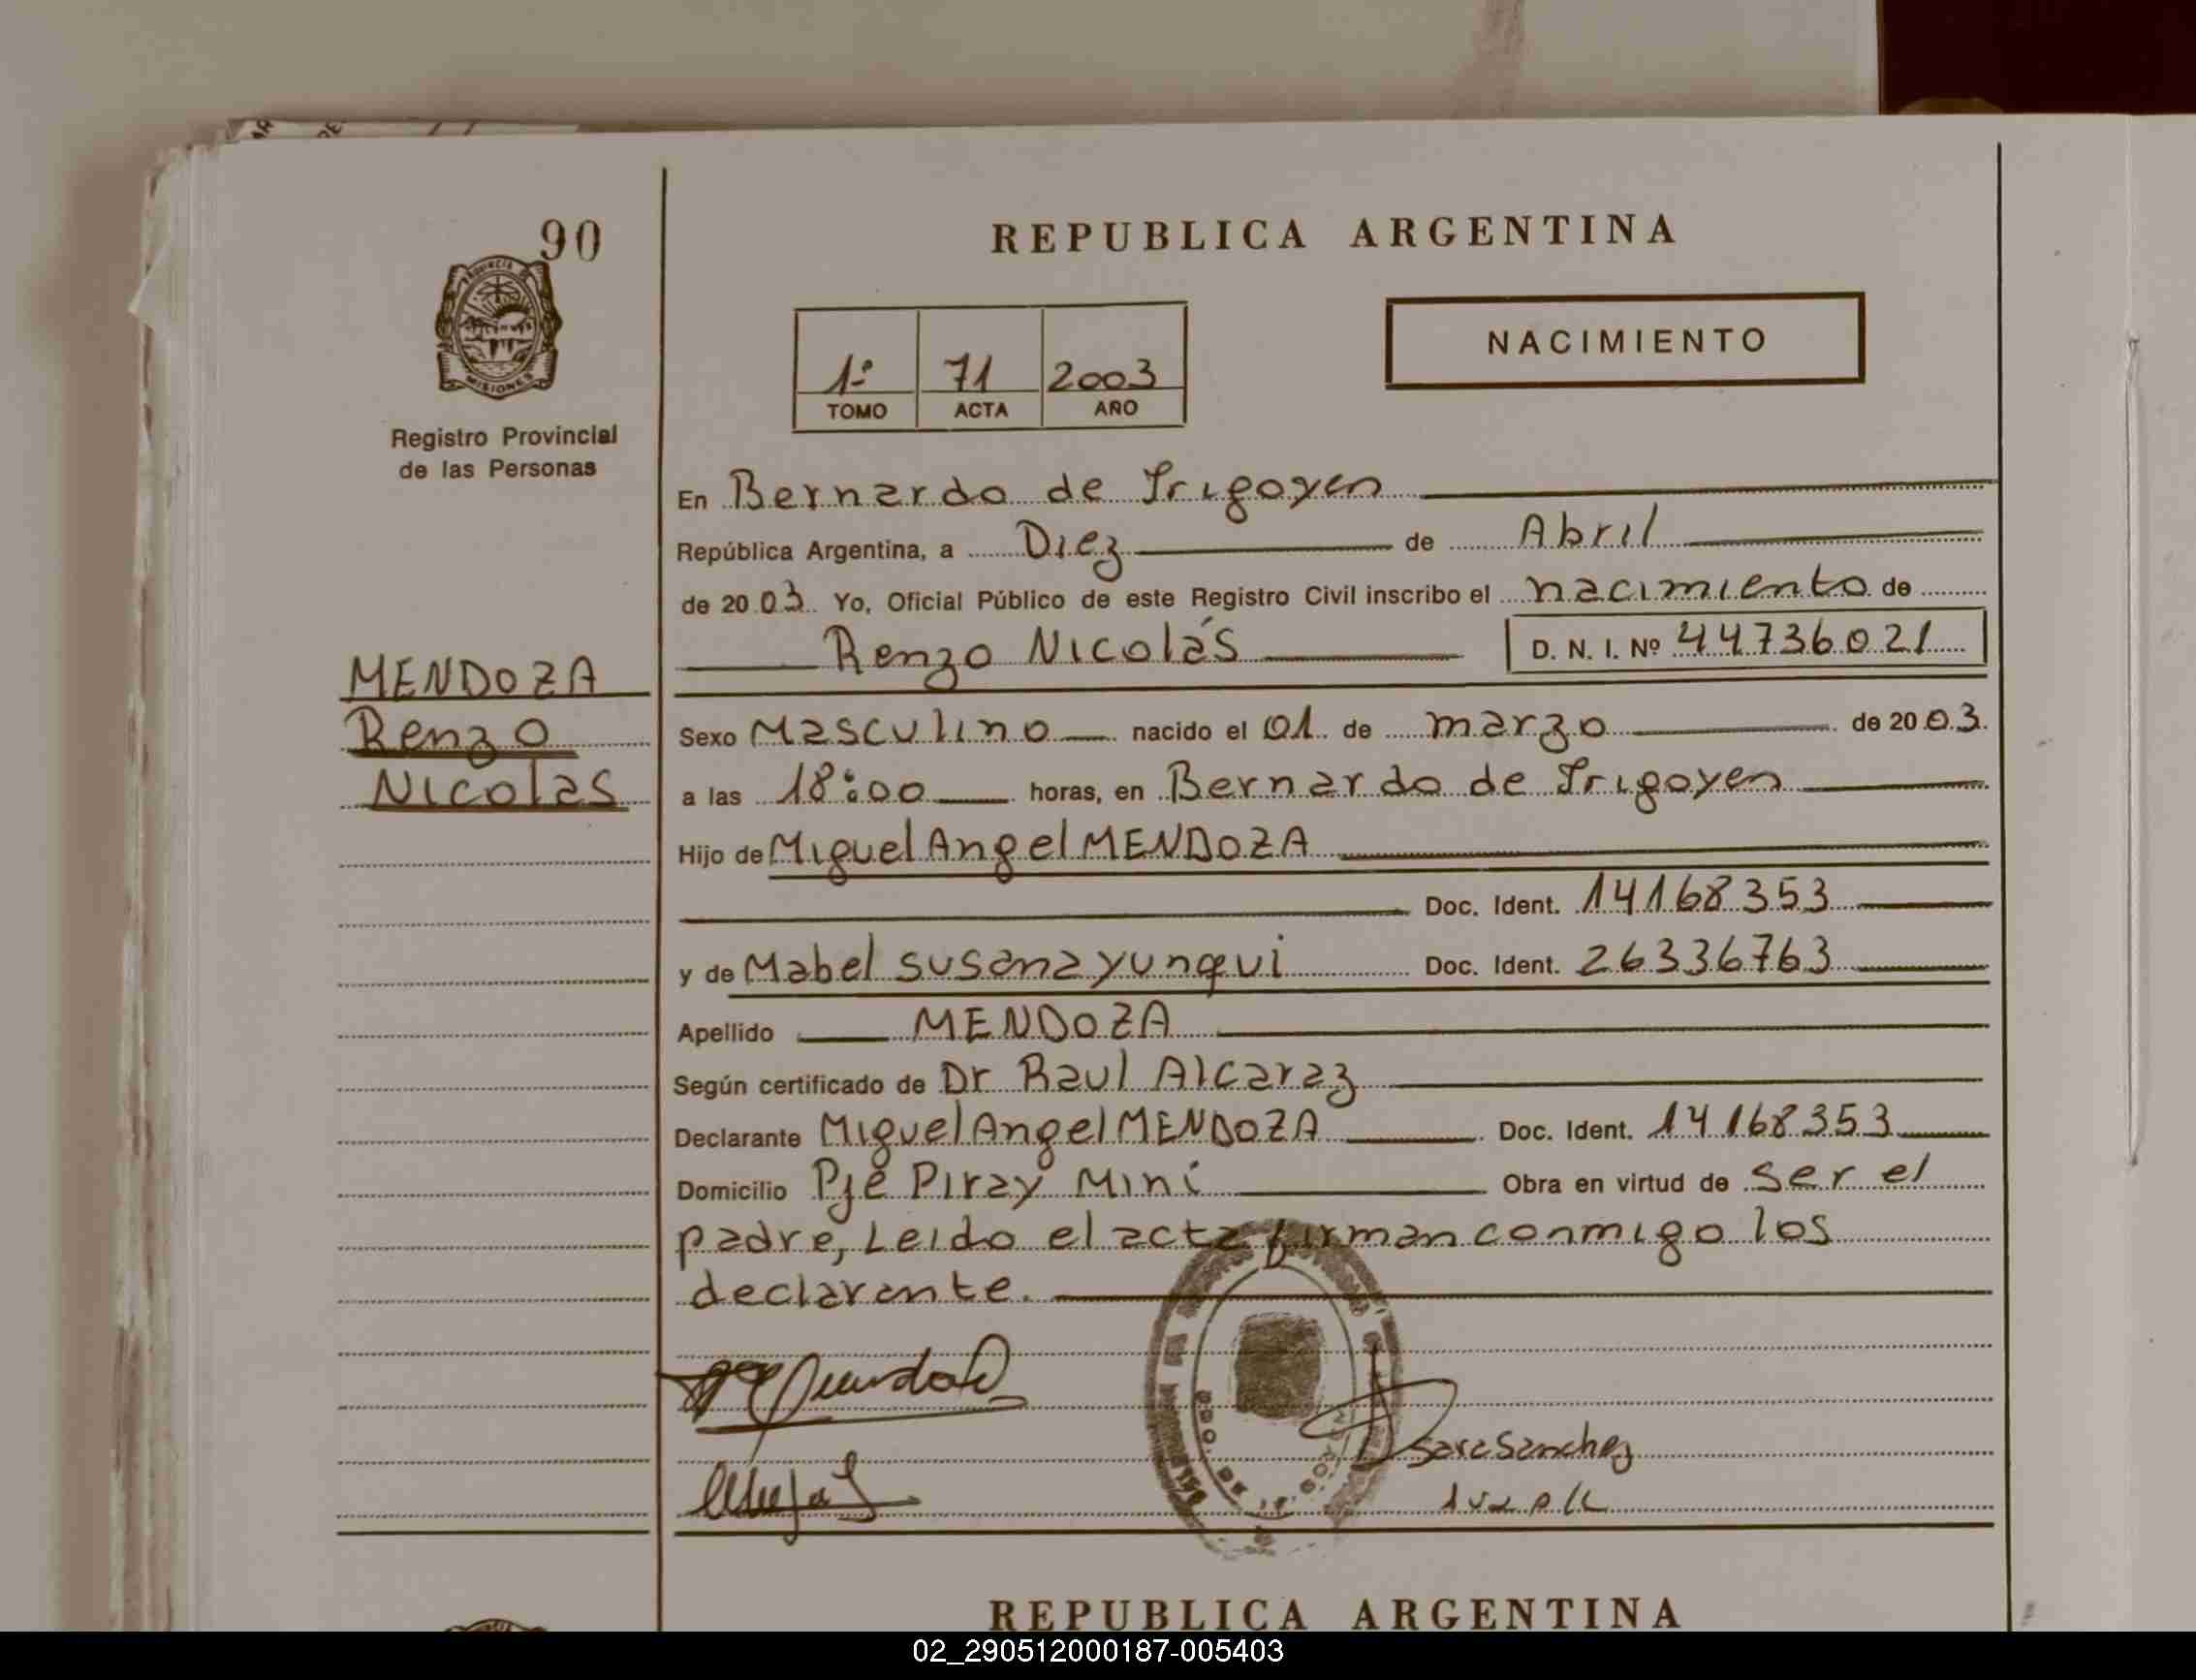 90
PROVINCIA DE
MISIONES
Registro Provincial
de las Personas
MENDOZA
Renzo
Nicolas
REPUBLICA ARGENTINA
NACIMIENTO
1º 71 2003
TOMO ACTA AÑO
En Bernardo de Irigoyen
República Argentina, a Diez de Abril
de 2003 Yo, Oficial Público de este Registro Civil inscribo el nacimiento de
Renzo Nicolás D. N. I. Nº 44736021
Sexo Masculino nacido el 01 de marzo de 2003.
a las 18:00 horas, en Bernardo de Irigoyen
Hijo de Miguel Angel MENDOZA
Doc. Ident. 14168353
y de Mabel susana yunqui Doc. Ident. 26336763
Apellido MENDOZA
Según certificado de Dr Raul Alcaraz
Declarante Miguel Angel MENDOZA Doc. Ident. 14168353
Domicilio Pje Piray Miní Obra en virtud de ser el
padre, Leido el acta firman conmigo los
declarante.
Sara Sanchez
REPUBLICA ARGENTINA
02_290512000187-005403